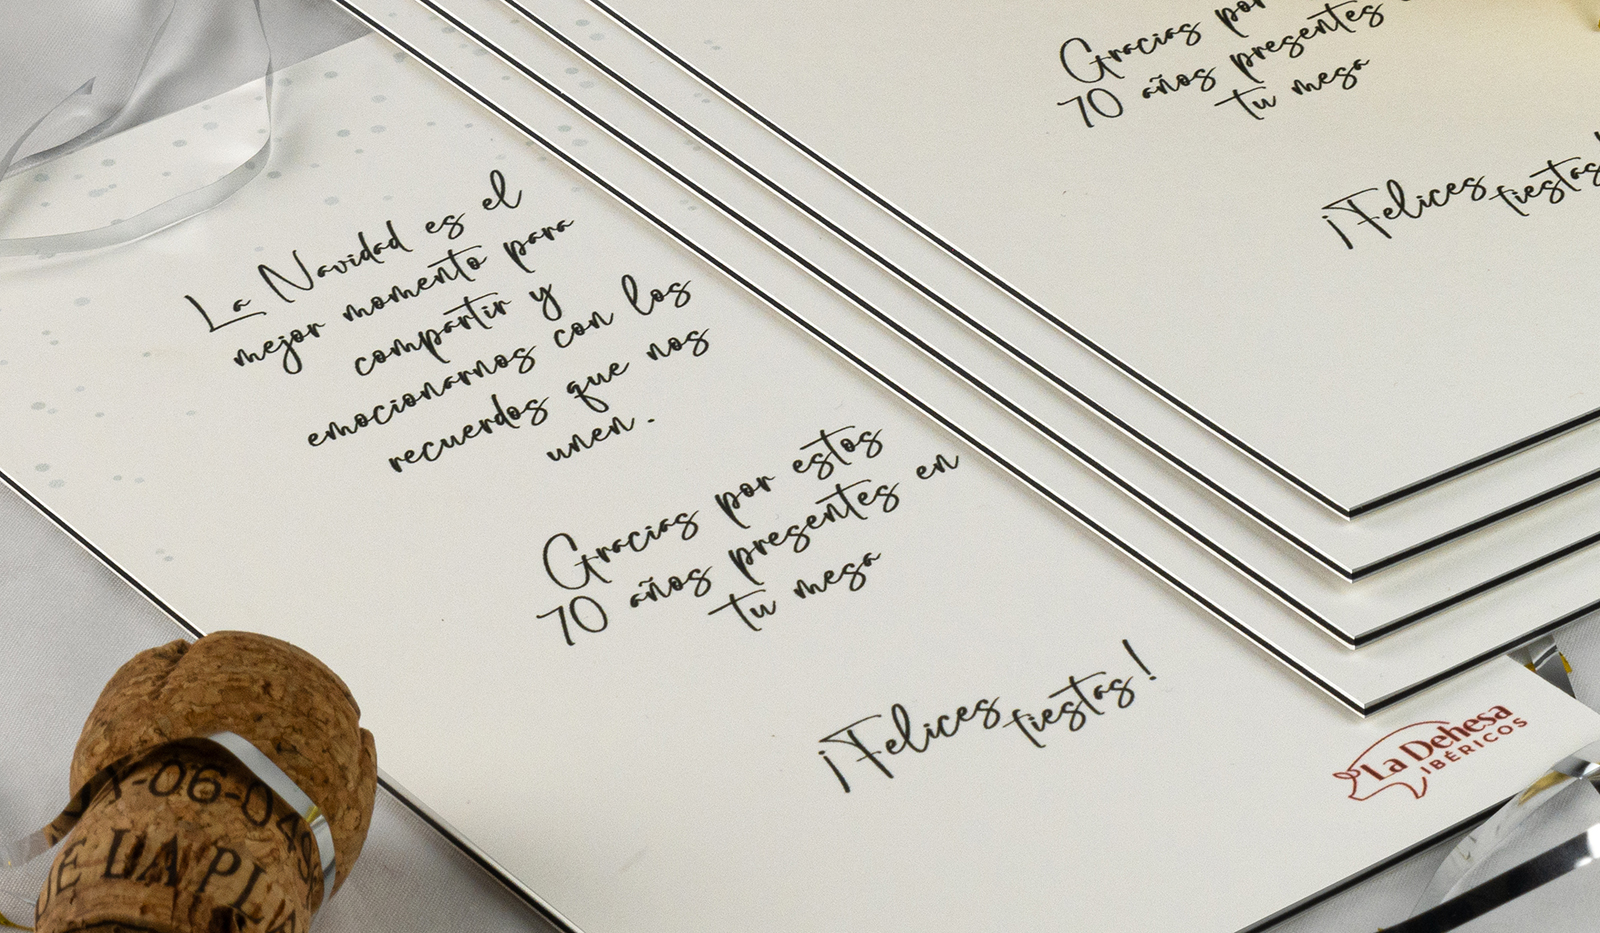 La Navidad es el
mejor momento para
compartir y
emocionarnos con los
recuerdos que nos
unen.
Gracias por estos
70 años presentes en
tu mesa
¡Felices fiestas!
La Dehesa
IBÉRICOS
Gracias por
70 años presentes
tu mesa
¡Felices fiestas
-06-0
LA PL